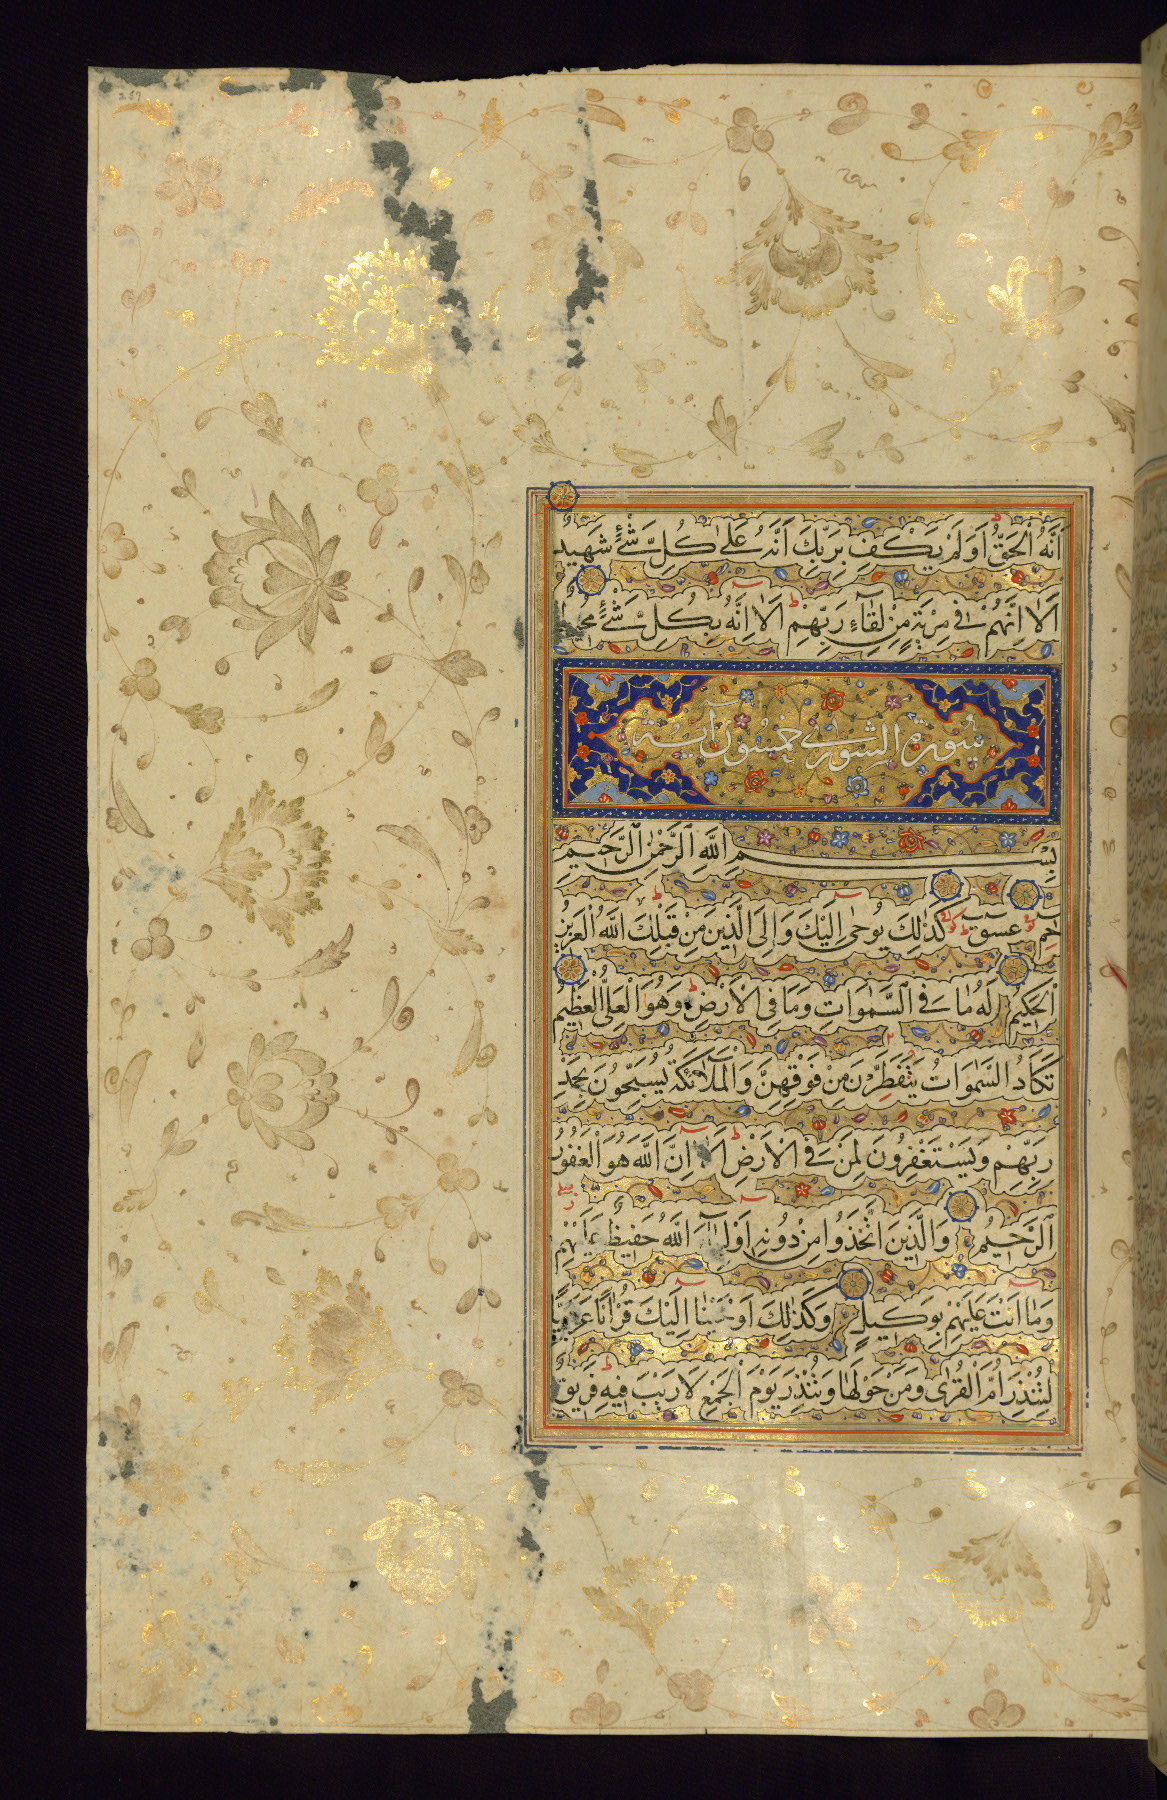 أَنَّهُ الْحَقُّ أَوَلَمْ يَكْفِ بِرَبِّكَ أَنَّهُ عَلَىٰ كُلِّ شَيْءٍ شَهِيدٌ
أَلَا إِنَّهُمْ فِي مِرْيَةٍ مِنْ لِقَاءِ رَبِّهِمْ أَلَا إِنَّهُ بِكُلِّ شَيْءٍ مُحِيطٌ
سورة الشورى خمسون آية
بِسْمِ اللَّهِ الرَّحْمَٰنِ الرَّحِيمِ
حم عسق كَذَٰلِكَ يُوحِي إِلَيْكَ وَإِلَى الَّذِينَ مِنْ قَبْلِكَ اللَّهُ الْعَزِيزُ
الْحَكِيمُ لَهُ مَا فِي السَّمَٰوَاتِ وَمَا فِي الْأَرْضِ وَهُوَ الْعَلِيُّ الْعَظِيمُ
تَكَادُ السَّمَٰوَاتُ يَتَفَطَّرْنَ مِنْ فَوْقِهِنَّ وَالْمَلَائِكَةُ يُسَبِّحُونَ بِحَمْدِ
رَبِّهِمْ وَيَسْتَغْفِرُونَ لِمَنْ فِي الْأَرْضِ أَلَا إِنَّ اللَّهَ هُوَ الْغَفُورُ
الرَّحِيمُ وَالَّذِينَ اتَّخَذُوا مِنْ دُونِهِ أَوْلِيَاءَ اللَّهُ حَفِيظٌ عَلَيْهِمْ
وَمَا أَنْتَ عَلَيْهِمْ بِوَكِيلٍ وَكَذَٰلِكَ أَوْحَيْنَا إِلَيْكَ قُرْآنًا عَرَبِيًّا
لِتُنْذِرَ أُمَّ الْقُرَىٰ وَمَنْ حَوْلَهَا وَتُنْذِرَ يَوْمَ الْجَمْعِ لَا رَيْبَ فِيهِ فَرِيقٌ